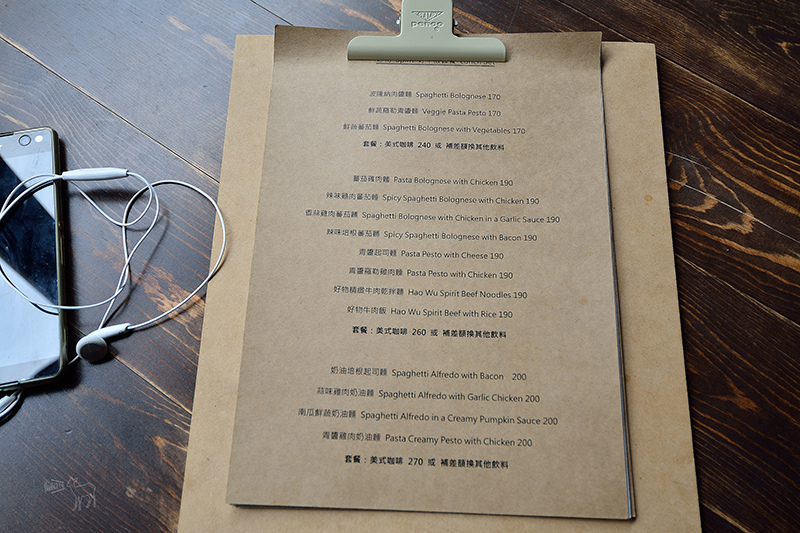 penco
波隆納肉醬麵 Spaghetti Bolognese 170
鮮蔬羅勒青醬麵 Veggie Pasta Pesto 170
鮮蔬蕃茄麵 Spaghetti Bolognese with Vegetables 170
套餐：美式咖啡 240 或 補差額換其他飲料
蕃茄雞肉麵 Pasta Bolognese with Chicken 190
辣味雞肉蕃茄麵 Spicy Spaghetti Bolognese with Chicken 190
香蒜雞肉蕃茄麵 Spaghetti Bolognese with Chicken in a Garlic Sauce 190
辣味培根蕃茄麵 Spicy Spaghetti Bolognese with Bacon 190
青醬起司麵 Pasta Pesto with Cheese 190
青醬羅勒雞肉麵 Pasta Pesto with Chicken 190
好物精緻牛肉乾拌麵 Hao Wu Spirit Beef Noodles 190
好物牛肉飯 Hao Wu Spirit Beef with Rice 190
套餐：美式咖啡 260 或 補差額換其他飲料
奶油培根起司麵 Spaghetti Alfredo with Bacon 200
蒜味雞肉奶油麵 Spaghetti Alfredo with Garlic Chicken 200
南瓜鮮蔬奶油麵 Spaghetti Alfredo in a Creamy Pumpkin Sauce 200
青醬雞肉奶油麵 Pasta Creamy Pesto with Chicken 200
套餐：美式咖啡 270 或 補差額換其他飲料